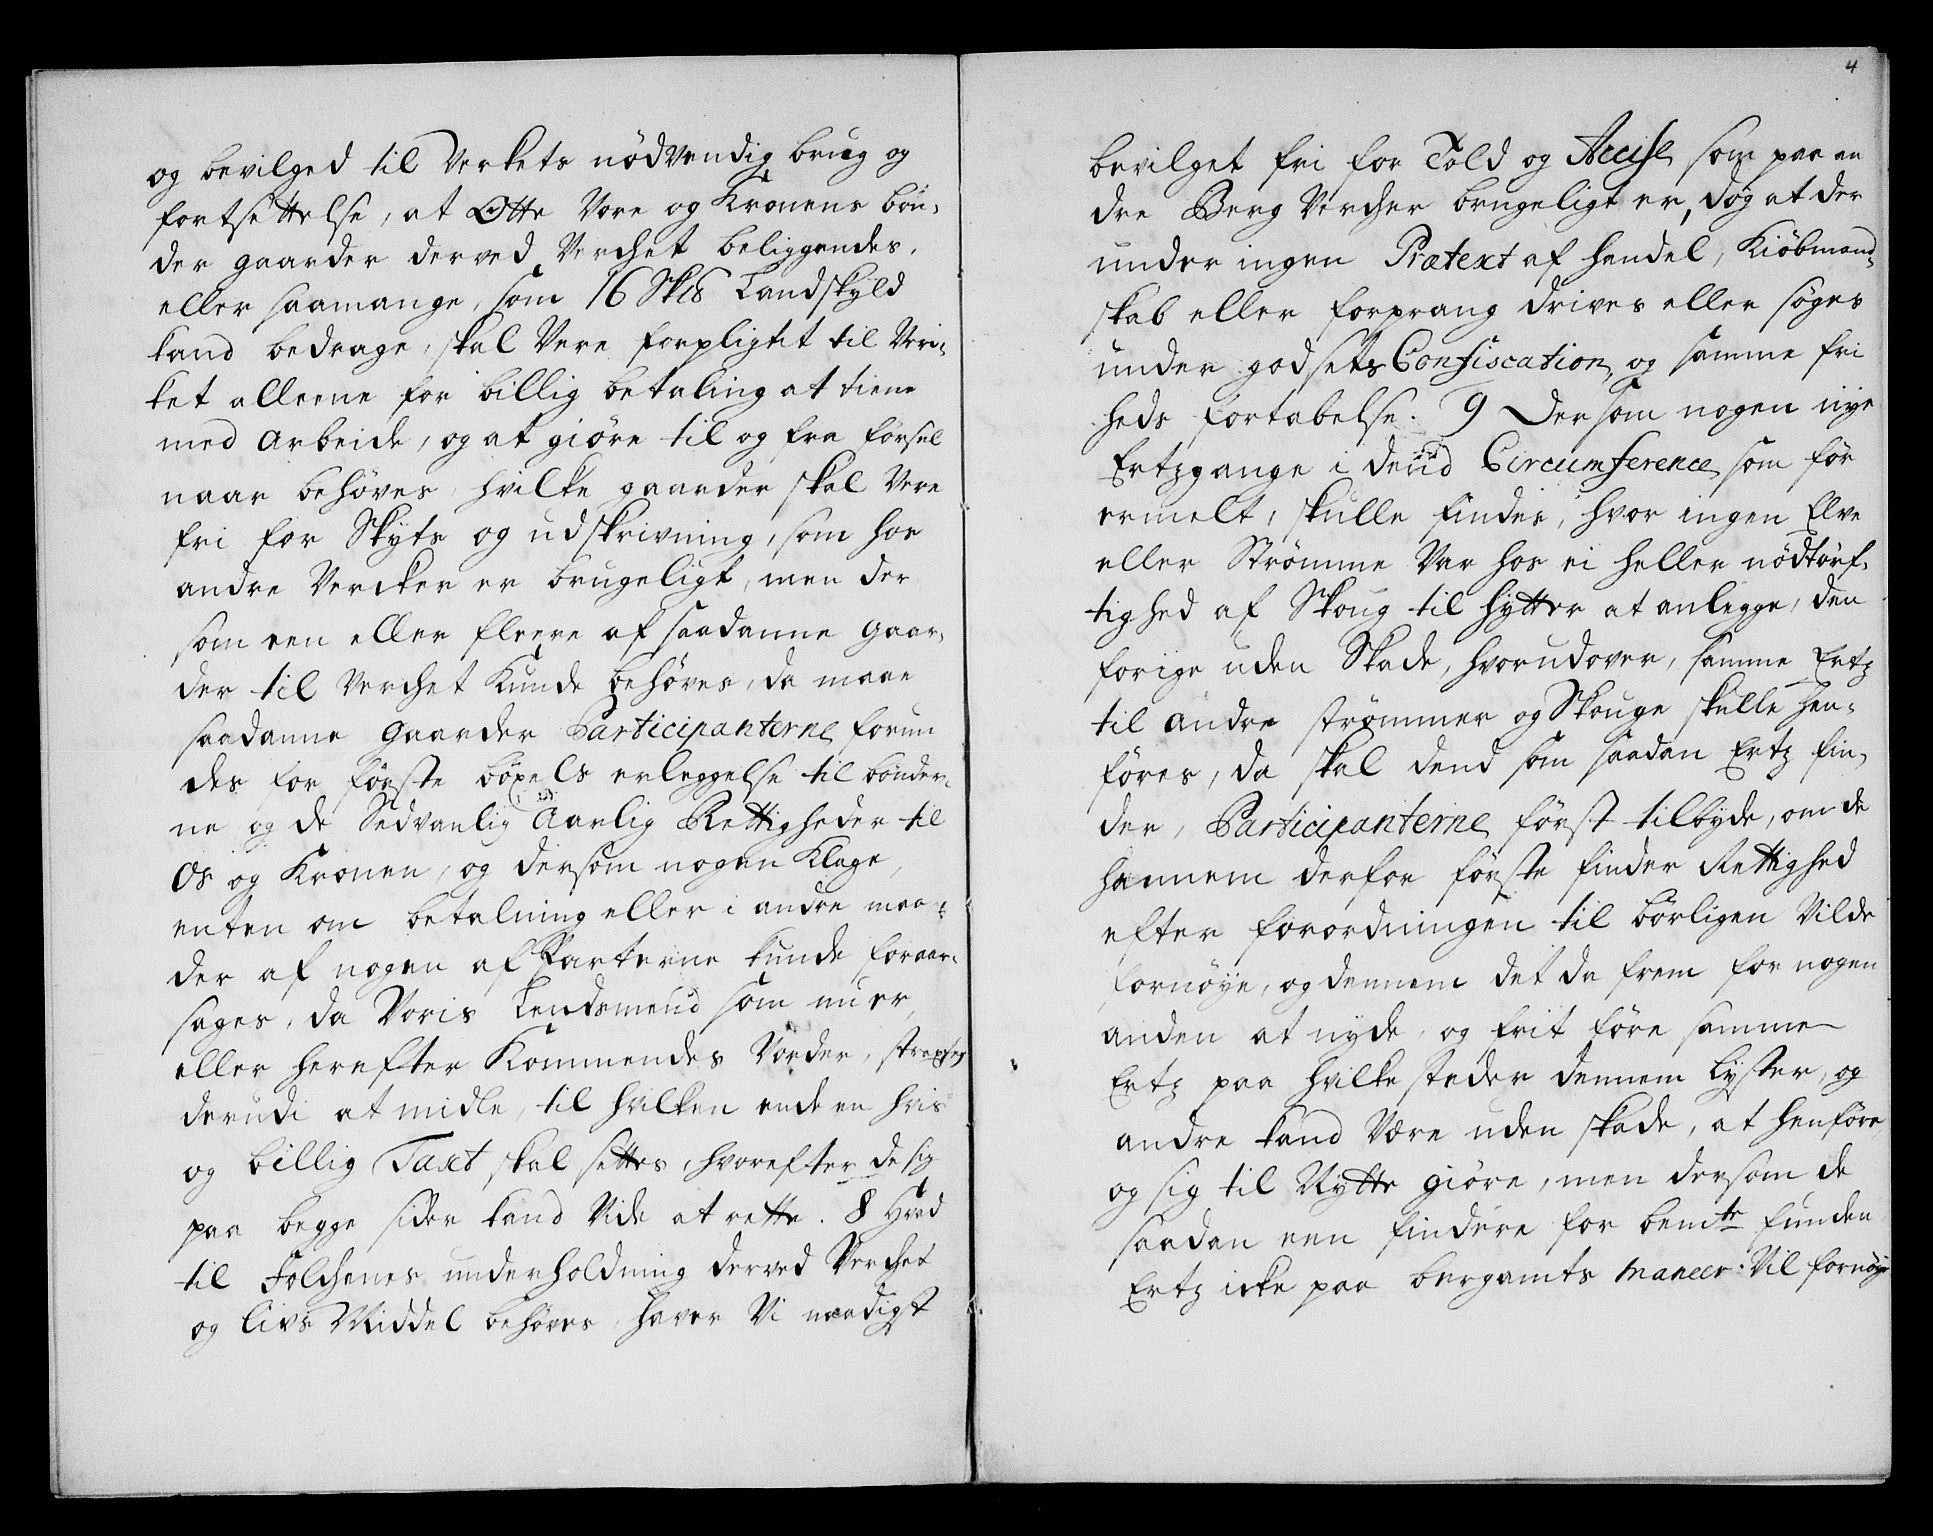 og bevilged til Verkets nödvendig brug og
fortsettelse, at Otte Vore og Kronens bön-
der gaarder derved Verchet beliggendes,
eller saamange, som 16 Sk℔ Landskyld
kand bedrage, skal Vere forpligtet til Ver-
ket alleene for billig betaling at tiene
med Arbeide, og at giöre til og fra försel
naar behöves, hvilke gaarder skal Vere
fri for Skyts og udskrivning, som hos
andre Vercker er brugeligt, men der
som een eller fleere af saadanne gaar-
der til Verchet Kunde behöves, da maae
saadanne Gaarder Participanterne forun
des for förste böxels erleggelse til bönder-
ne og de Sedvanlig Aarlig Rettigheder til
Os og Kronen, og dersom nogen Klage,
enten om betalning eller i andre maa-
der af nogen af Parterne kunde foraar-
sages, da Voris Lendsmend som nu er,
eller herefter Kommendes Vorder, straxes
derudi at midle, til hvilken ende en hvis
og billig Taxt skal settes, hvorefter de sig
paa begge sider kand Vide at rette. 8 Hvad
til Folchenes underholdning derved Verchet
og livs Middel behöves, haver Vi naadigst
4
bevilget fri for Told og Accise som paa an
dre Berg Vercher brugeligt er, dog at der
under ingen Prætext af handel, Kiöbmand-
skab eller forprang drives eller söges
under godsets Confiscation, og samme fri
heds fortabelse. 9 Dersom nogen nye
Ertzgange i dend Circumference som för
ermelt, skulle findes, hvor ingen Elve
eller Strömme Var hos ei heller nödtörf-
tighed af Skoug til hytter at anlegge, den
forige uden Skade, hvorudover, samme Ertz
til andre strömmer og Skouge skulle hen-
föres, da skal dend som saadan Ertz fin-
der, Participanterne först tilbyde, om de
hannem derfor förste finder Rettighed
efter forordningen til börligen Vilde
fornöye, og dennem det da frem for nogen
anden at nyde, og frit före samme
Ertz paa hvilke steder dennem lyster, og
andre kand Være uden skade, at henföre,
og sig til Nytte giöre, men dersom de
saadan een findere for bemte funden
Ertz icke paa bergamts maneer Vil fornöye